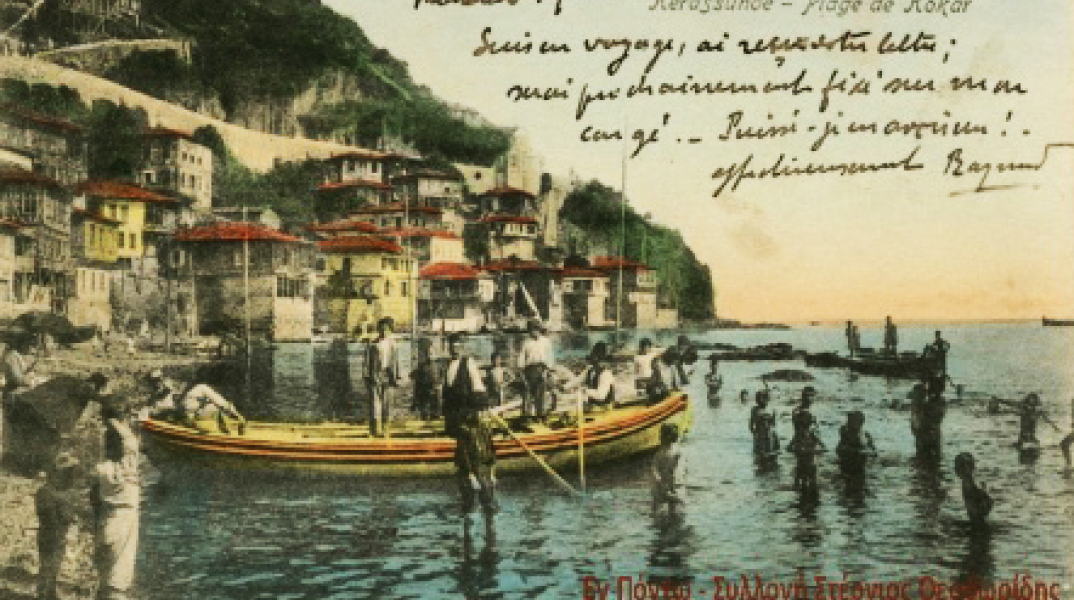 Kerassunde – Plage de Kokar
Suis en voyage, ai reçu votre lettre;
serai prochainement fixé sur mon
congé. – Puissé-je en !
affectueusement
Εν Πόντω - Συλλογή Στέργιος Θεοδωρίδης